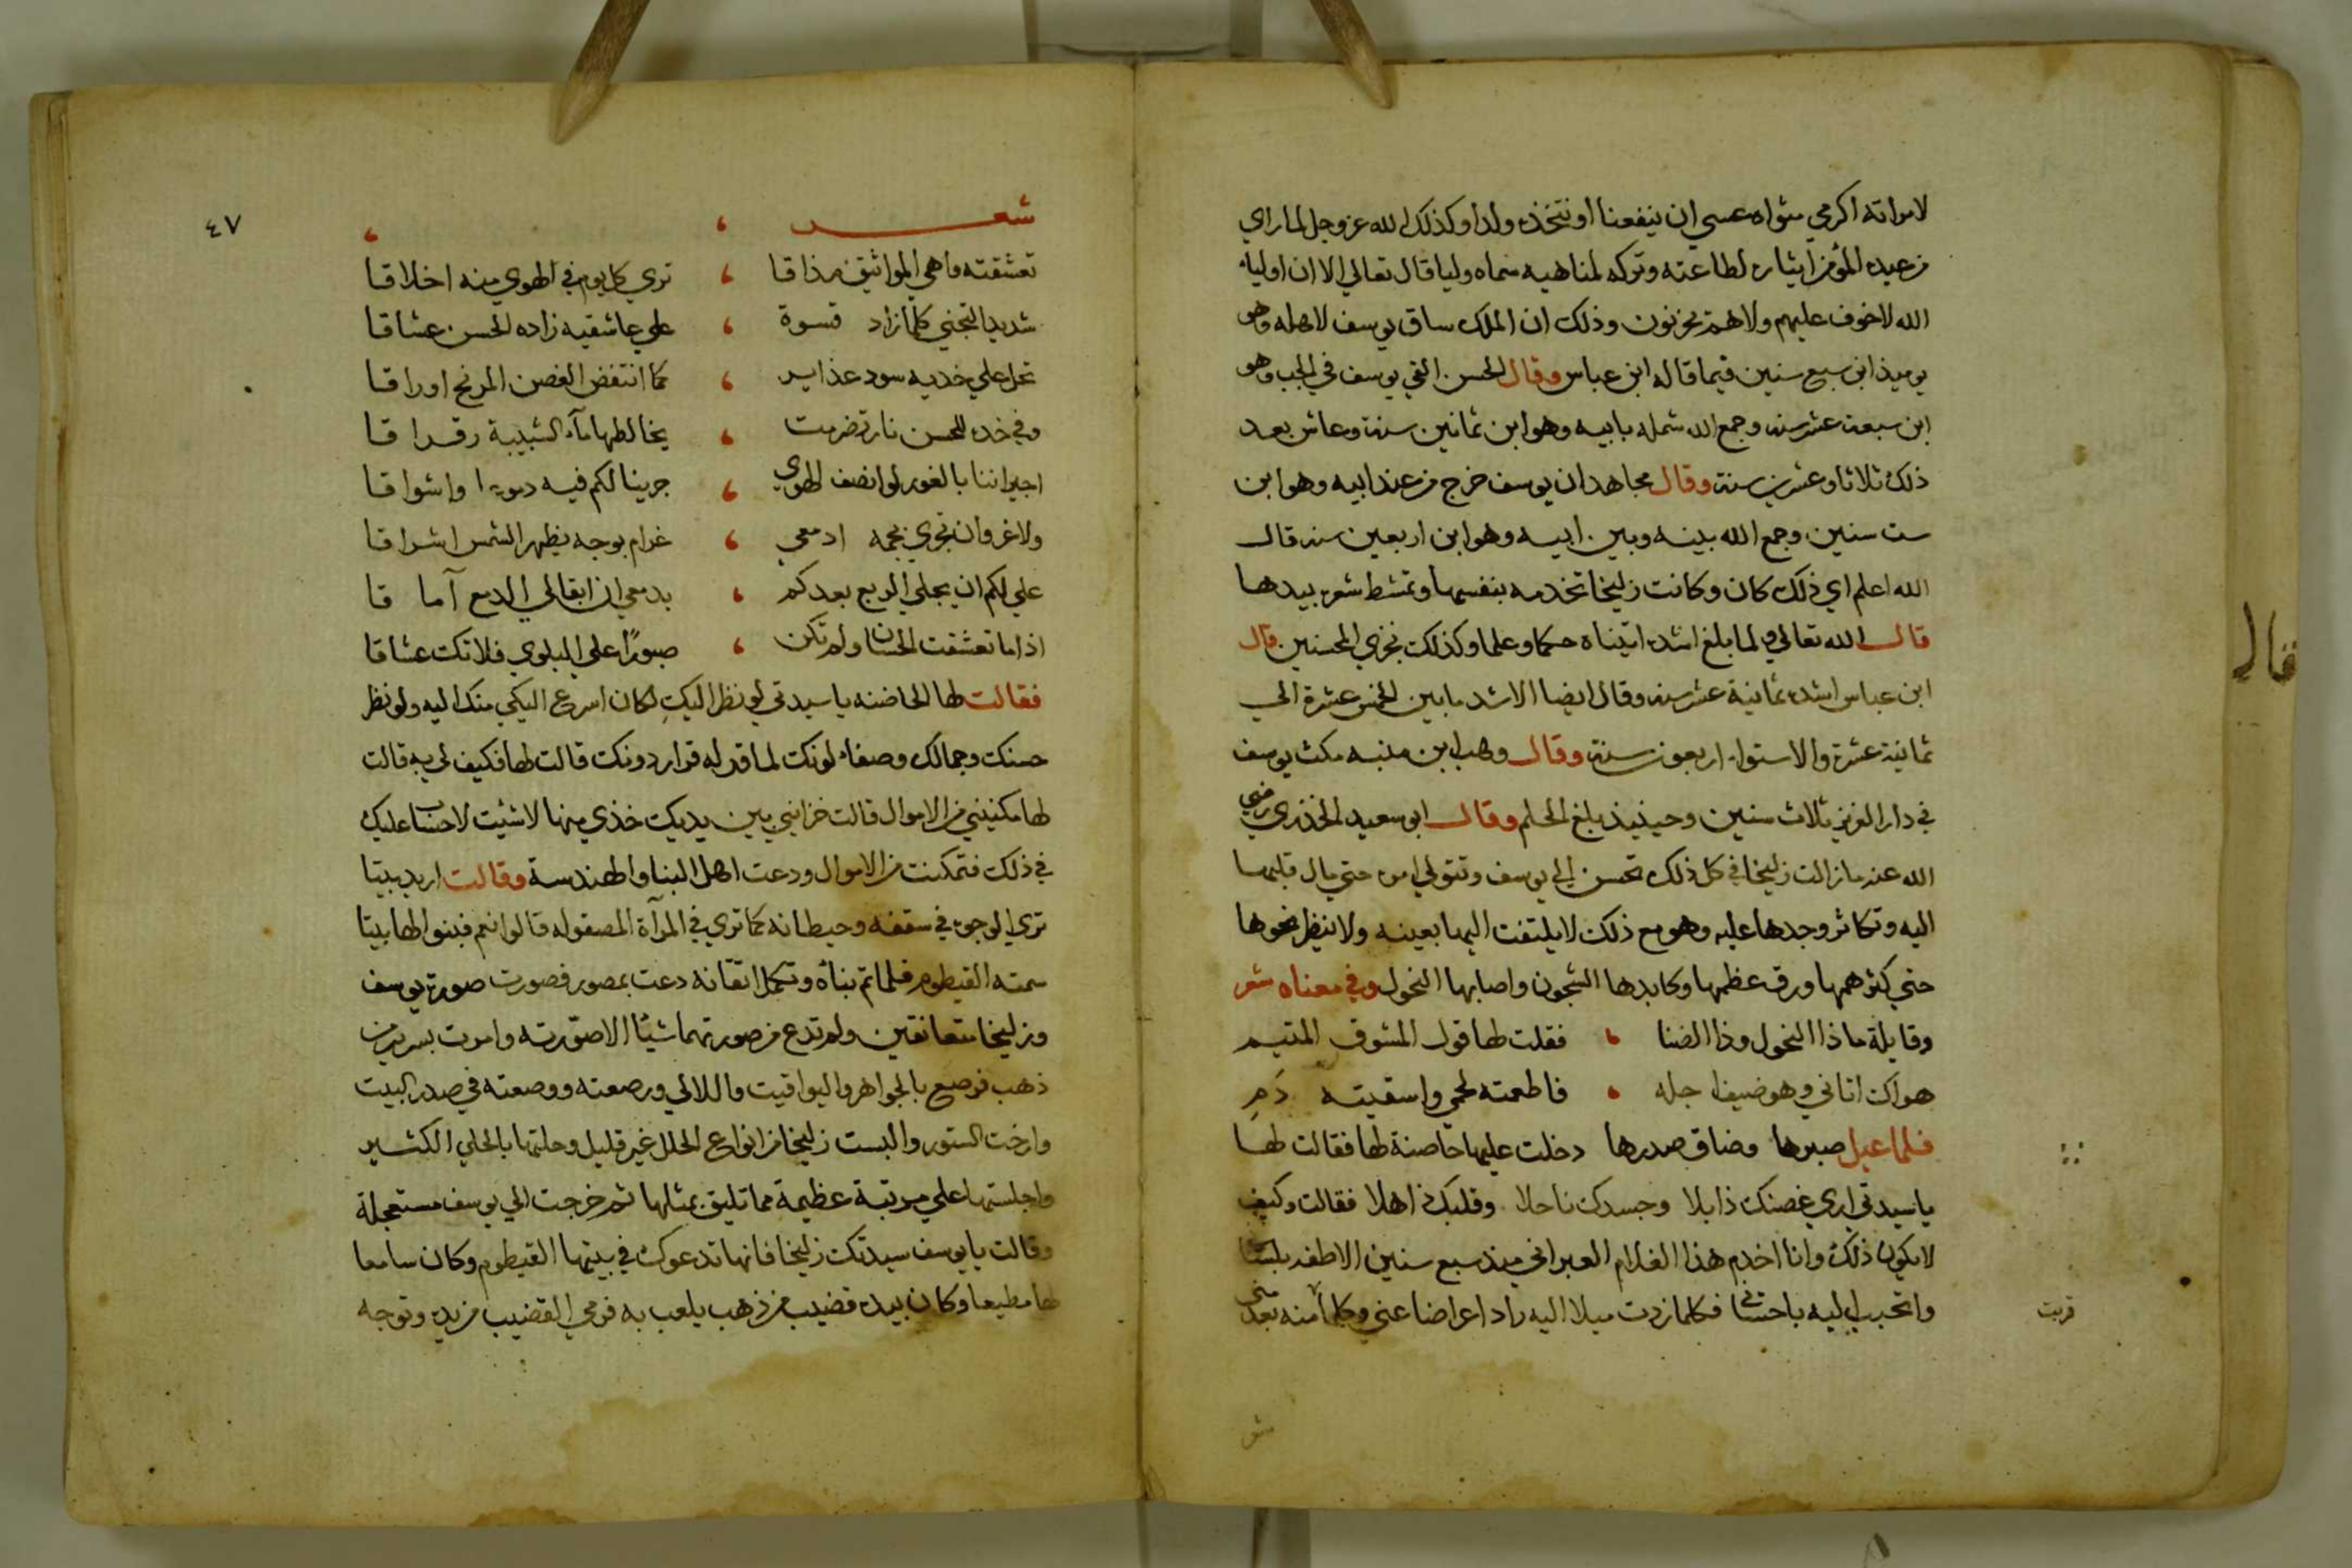 لامراته اكرمي مثواه عسي ان ينفعنا او نتخذه ولدا وكذلك الله عز وجل لما راي
من عبده المؤمن ايثاره لطاعته وتركه لمناهيه سماه وليا قال تعالي الا ان اولياء
الله لا خوف عليهم ولاهم يحزنون وذلك ان الملك ساق يوسف لاهله وهو
يوميذ ابن سبع سنين فيما قاله ابن عباس وقال الحسن القي يوسف في الجب وهو
ابن سبعة عشر سنه وجمع الله شمله بابيه وهو ابن ثمانين سنة وعاش بعد
ذلك ثلاثا وعشرين سنة وقال مجاهد ان يوسف خرج من عند ابيه وهو ابن
ست سنين وجمع الله بينه وبين ابيه وهو ابن اربعين سنه قال
الله اعلم اي ذلك كان وكانت زليخا تخدمه بنفسها وتمشط شعره بيدها
قال الله تعالي ولما بلغ اشده اتيناه حكما وعلما وكذلك نجزي المحسنين قال
ابن عباس اشده ثمانية عشر سنه وقال ايضا الاشد ما بين الخمس عشرة الي
ثمانية عشرة والاستواء اربعون سنة وقال وهب ابن منبه مكث يوسف
في دار العزيز ثلاث سنين وحينيذ بلغ الحلم وقال ابو سعيد الخذري رضي
الله عنه ما زالت زليخا في كل ذلك تحسن الي يوسف وتتولي امره حتي مال قلبها
اليه وتكاثر وجدها عليه وهو مع ذلك لا يلتفت اليها بعينه ولا ينظر نحوها
حتي كثر همها ورق عظمها وكابدها الشجون واصابها النحول وفي معناه شعر
وقايلة ماذا النحول وذا الضنا ، فقلت لها قول المشوق المتيم
هواك اتاني وهو ضيف اجله ، فاطعمته لحمي واسقيته دَمِ
فلما عيل صبرها وضاق صدرها دخلت عليها حاضنة لها فقالت لها
يا سيدتي اري غصنك ذابلا وجسدك ناحلا وقلبك ذاهلا فقالت وكيف
لا يكون ذلك وانا اخدم هذا الغلام العبراني منذ سبع سنين الاطفه بلسا
واتحبب اليه باحساني فكلما زدت ميلا اليه زاد اعراضا عني وكلما منه بعد مني
قربت
شعر
٤٧
شعــر ، ،
تعشقته واهي المواثيق مذاقا ، تري كل يوم في الهوي منه اخلاقا
شديد التجني كلما زاد قسوة ، علي عاشقيه زاده الحسن عشاقا
تحل علي خديه سود غذاير ، كما انتفض الغصن المرنح اوراقا
وفي خده للحسن نار تضرمت ، يخالطها مآء الشبيبة رقراقا
اجيراننا بالغور لو انصف الهوي ، جرينا لكم فيه دموعا واشواقا
ولا غرو ان تجري بجمه ادمعي ، غرام بوجه يظهر الشمس اشراقا
علي لكم ان يجلي الربع بعدكم ، بدمعي ان ابقالي الدمع آماقا
اذا ما تعشقت الحسان ولم تكن ، صبورًا علي البلوي فلا تك عشاقا
فقالت لها الحاضنه يا سيدتي لو نظر اليكِ لكان اسرع اليكي منك اليه ولو نظر
حسنك وجمالك وصفاء لونك لما قر له قرار دونك قالت لها فكيف لي به قالت
لها مكنيني من الاموال قالت خزايني بين يديك خذي منها لا شئيت لا حساب عليك
في ذلك فتمكنت من الاموال ودعت اهل البنا والهندسة وقالت اريد بيتا
تري الوجوه في سقفه وحيطانه كما تري في المرآة المصقوله قالوا نعم فبنوا لها بيتا
سمته القيطوم فلما تم بناؤه وتكمل اتقانه دعت بمصور فصورت صورة يوسف
وزليخا متعانقين ولم تدع من صورتهما شيئا الا صوّرته وامرت بسرير من
ذهب فرصع بالجواهر واليواقيت واللالي ورصعته ووضعته في صدر البيت
وارخت الستور والبست زليخا من انواع الحلل غير قليل وحلتها بالحلي الكثير
واجلستها علي مرتبة عظيمة مما تليق بمثلها ثم خرجت الي يوسف مستعجلة
وقالت يا يوسف سيدتك زليخا فانها تدعوك في بيتها القيطوم وكان سامعا
لها مطيعا وكان بيده قضيب من ذهب يلعب به فرمي القضيب من يده وتوجه